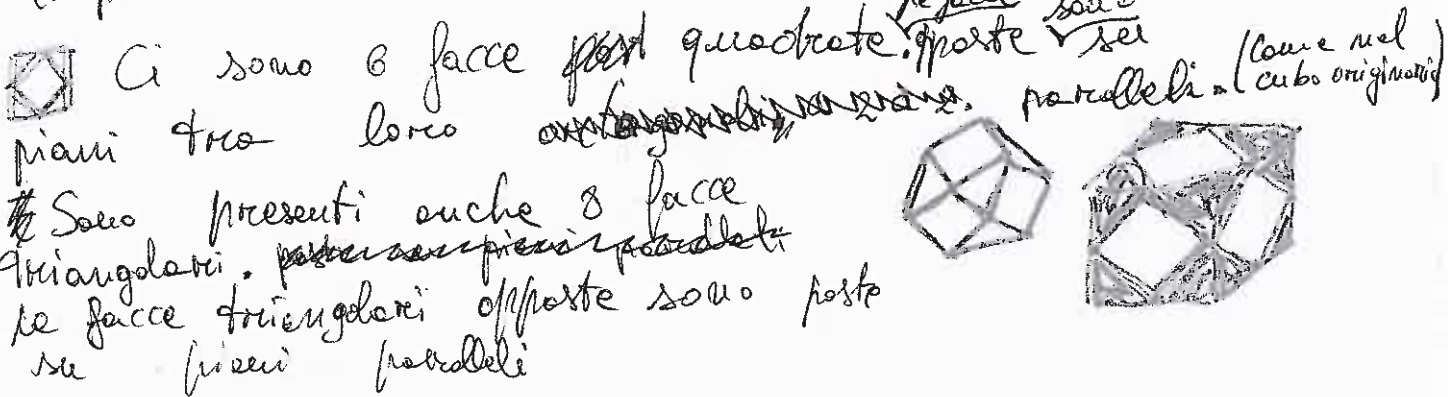 Ci sono 6 facce quadrate. le facce opposte sono su
piani tra loro paralleli. (come nel cubo originario)
Sono presenti anche 8 facce
triangolari.
le facce triangolari opposte sono poste
su piani paralleli